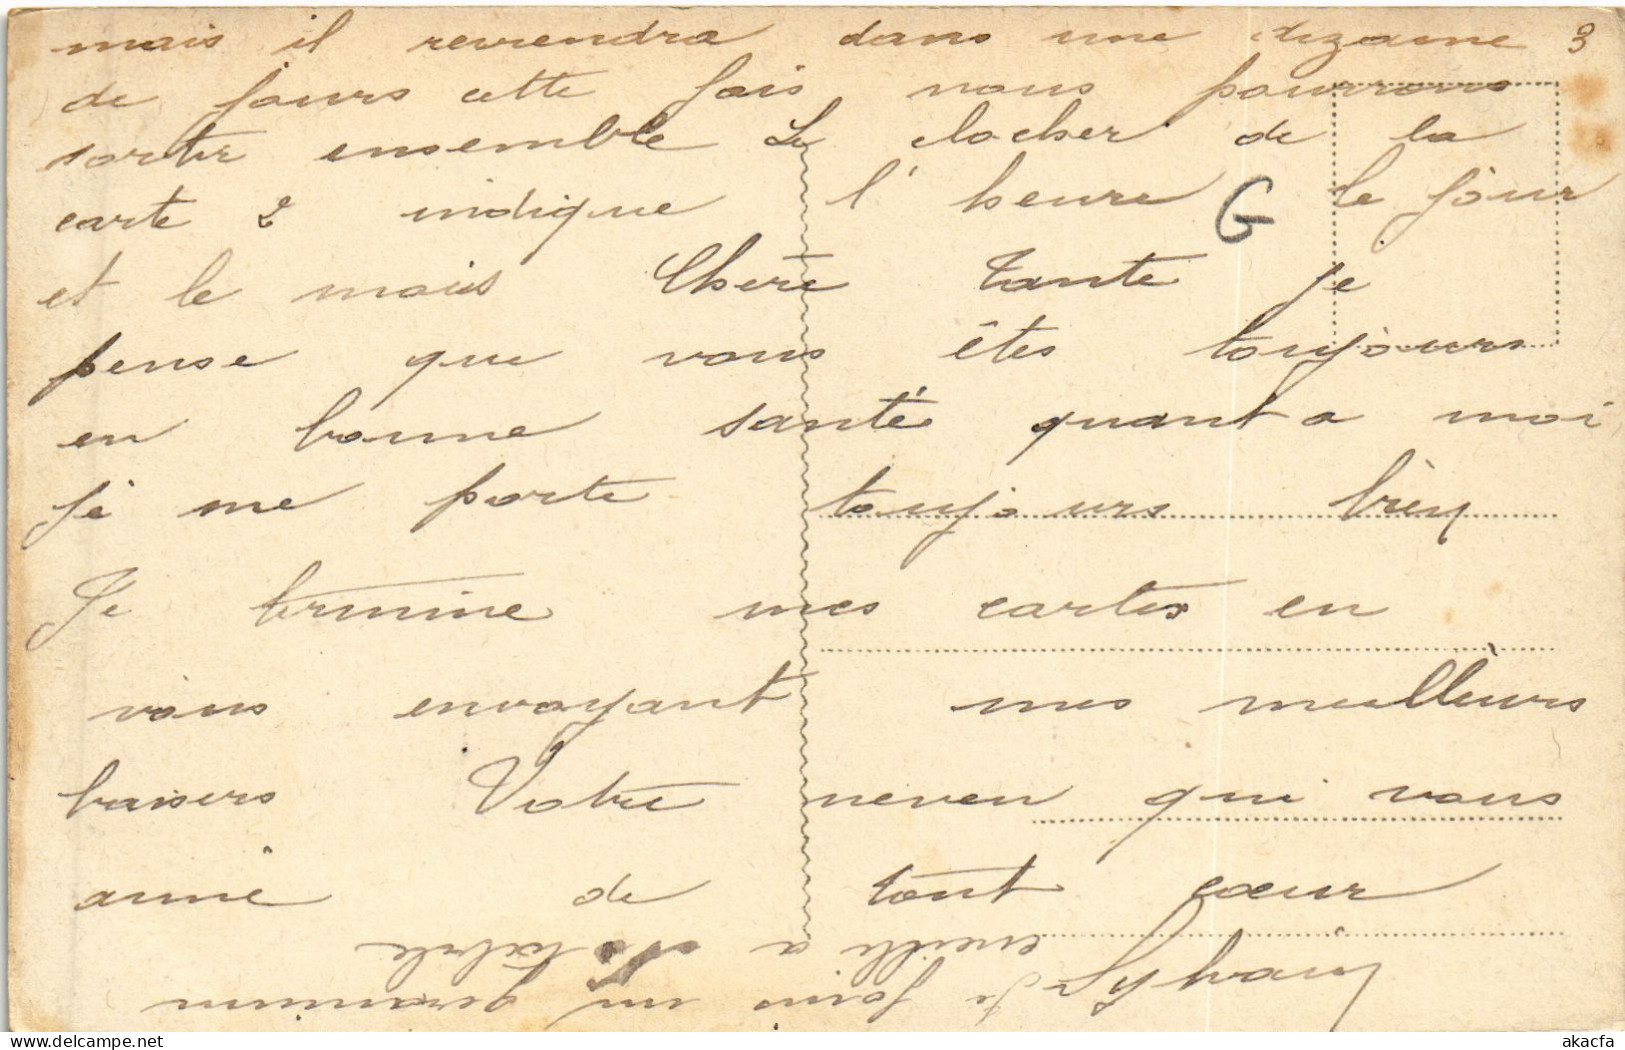 mais il reviendra dans une dizaine 3
de jours cette fois nous pourrons
sortir ensemble Le clocher de la
carte 2 indique l'heure G le jour
et le mois Chère Tante je
pense que vous êtes toujours
en bonne santé quant a moi
je me porte toujours bien
Je termine mes cartes en
vous envoyant mes meilleurs
baisers Votre neveu qui vous
aime de tout cœur
Sylvain
Je joins un geranium
cueilli a
www.delcampe.net
akacfa